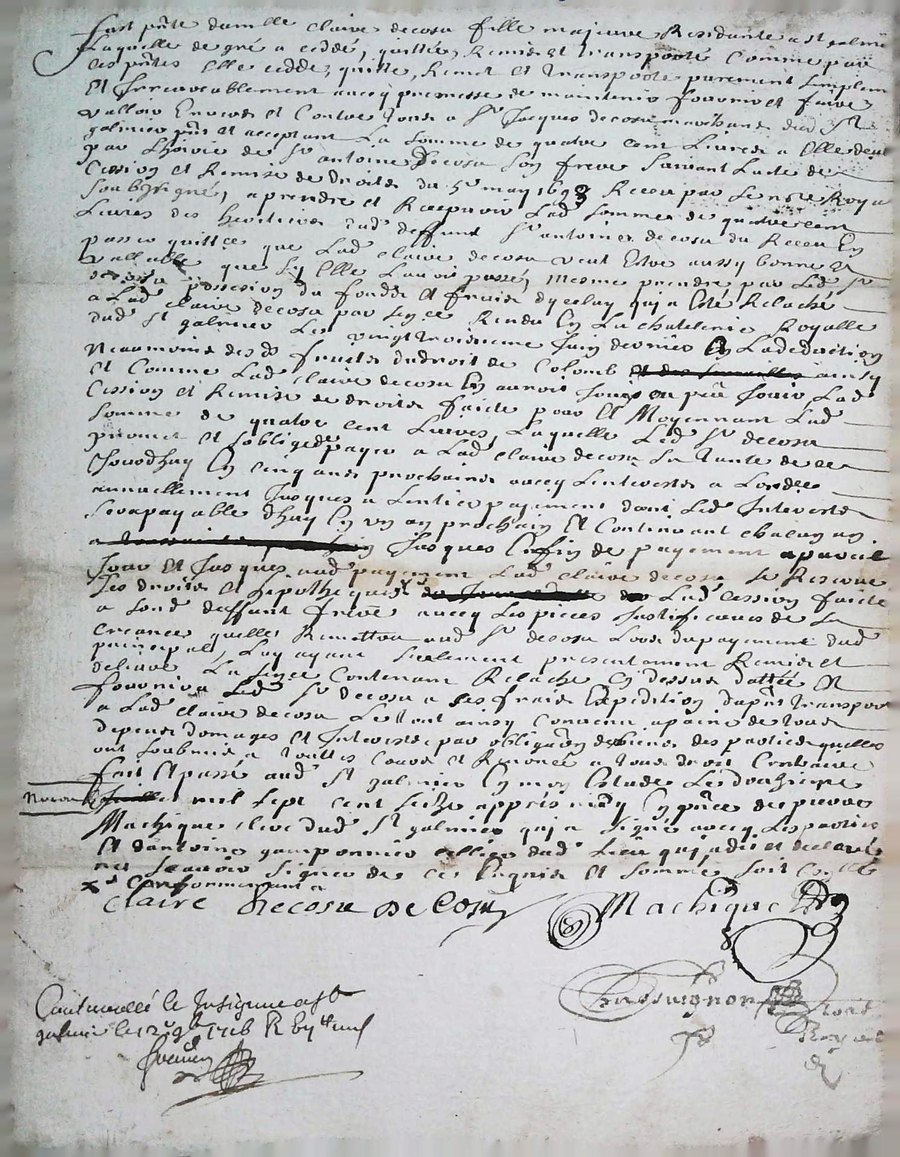 fust pnte damlle Claire decosu fille majeure Residante a st galmie
Laquelle de gré a ceddé, quitté, Remis et transporté Comme par
Ces pntes Elle cedde, quitte, Remet et transporte purement simplem
Et Irrevocablement avecq promesse de maintenir fournir et faire
valloir Envers et Contre tous a Sr Jacques decosu marchand dud st
galmier pnt et acceptant La somme de quatre cent Livres a Elle deue
par Lhoirie de Sr antoine Decosu son frere suivant Lacte de
Cession et Remise de droits du 5e may 1693 Receu par Le nore Royal
soubzsigné, a prendre et Recepvoir Lad somme de quatre cent
Livres des heritiers dud deffunt Sr antoine decosu du Receu En
passer quittce que Lad Claire decosu veut Estre aussy bonne et
vallable que sy Elle Lavoit passée, mesme prendre par Led Sr
decosu possession du fonds et fruits dycelluy qui a Esté Relaché
a Lad Claire decosu par Rendu En La chatelenie Royalle
dud St galmier Les vingt troisieme Juin dernier En La deduction
Neaumoins desd fruits du droit de Colomb ainsy
Et Comme Lad Claire decosu En auroit Jouy ou peu Jouir Lad
Cession et Remise de droits faicte pour Et Moyennant Lad
somme de quatre cent Livres, Laquelle Led Sr decosu
promet et soblige payer a Lad Claire decosu sa tante de ce
Jourdhuy En cinq ans prochains avecq Linterests a Lordce
annuellement Jusques a Lentier payement dont Led Interests
sera payable dhuy En un an prochain Et Continuant chacun an
Jusques Enfin de payement a pareil
Jour Et Jusques aud payement Lad Claire decosu se Reserve
ses droits et hipotheques Lad Cession faicte
a sond deffunt frere avecq Les pieces Justificatives de sa
Creance quelle Remettra aud Sr decosu Lors du payement dud
principal, Luy ayant seulement presentement Remis et
delivré La Contenant Relache Cy dessus dattée Et
fournira Led Sr decosu a ses frais Expedition du pnt transport
a Lad Claire decosu Le tout ainsy Convenu a peine de tous
depens domages et Interests, par obligaon de biens des parties quelles
ont soubmis a touttes Cours et Renoncé a tous droit Contraire
fait Et passé aud St galmier En mon Estude Le douzieme
Novembre mil sept cent seize appres midy En pnce de pierre
Machique clerc dud St galmier qui a signé avecq Les parties
Et dantoine gamponnier dud Lieu qui a dit et declaré
ne scavoir signer de ce Enquis et sommé soit Controllé
Conformement a
Claire Decosu De Cosu Machique
Controollé et Insigné a St
galmier le 12e 9bre 1716 R
Royal